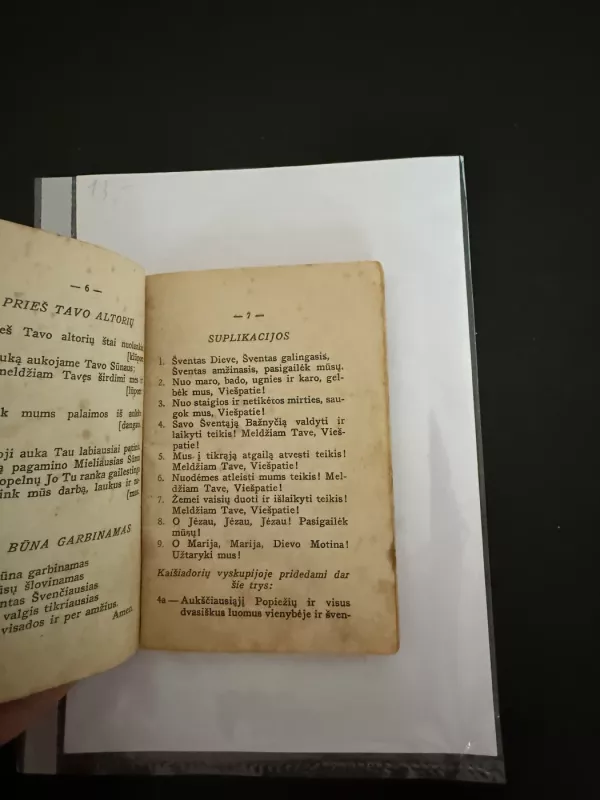 13.-
— 6 —
PRIEŠ TAVO ALTORIŲ
Tavo altorių štai
[klūpom
auką aukojame Tavo Sūnaus;
meldžiam Tavęs širdimi
mums palaimos iš
[dangau
auka Tau labiausiai
pagamino Mieliausias Sūnu
Jo Tu ranka
mūs darbą, laukus ir
BŪNA GARBINAMAS
garbinamas
šlovinamas
Švenčiausias
valgis tikriausias
visados ir per amžius.
Amen.
— 7 —
SUPLIKACIJOS
1. Šventas Dieve, Šventas galingasis,
Šventas amžinasis, pasigailėk mūsų.
2. Nuo maro, bado, ugnies ir karo, gel-
bėk mus, Viešpatie!
3. Nuo staigios ir netikėtos mirties, sau-
gok mus, Viešpatie!
4. Savo Šventąją Bažnyčią valdyti ir
laikyti teikis! Meldžiam Tave, Vieš-
patie!
5. Mus į tikrąją atgailą atvesti teikis!
Meldžiam Tave, Viešpatie!
6. Nuodėmes atleisti mums teikis! Mel-
džiam Tave, Viešpatie!
7. Žemei vaisių duoti ir išlaikyti teikis!
Meldžiam Tave, Viešpatie!
8. O Jėzau, Jėzau, Jėzau! Pasigailėk
mūsų!
9. O Marija, Marija, Dievo Motina!
Užtaryki mus!
Kaišiadorių vyskupijoje pridedami dar
šie trys:
4a — Aukščiausiąjį Popiežių ir visus
dvasiškus luomus vienybėje ir šven-